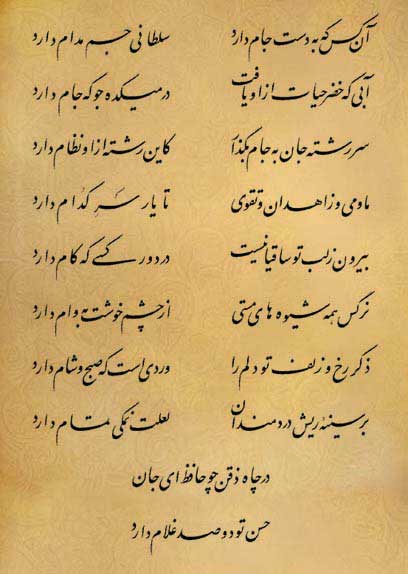 آن کس که به دست جام دارد سلطانی جم مدام دارد
آبی که خضر حیات از او یافت در میکده جو که جام دارد
سررشته جان به جام بگذار کاین رشته از او نظام دارد
ما و می و زاهدان و تقوی تا یار سر کدام دارد
بیرون ز لب تو ساقیا نیست در دور کسی که کام دارد
نرگس همه شیوه های مستی از چشم خوشت به وام دارد
ذکر رخ و زلف تو دلم را وردی است که صبح و شام دارد
بر سینهٔ ریش دردمندان لعلت نمکی تمام دارد
در چاه ذقن چو حافظ ای جان
حسن تو دو صد غلام دارد